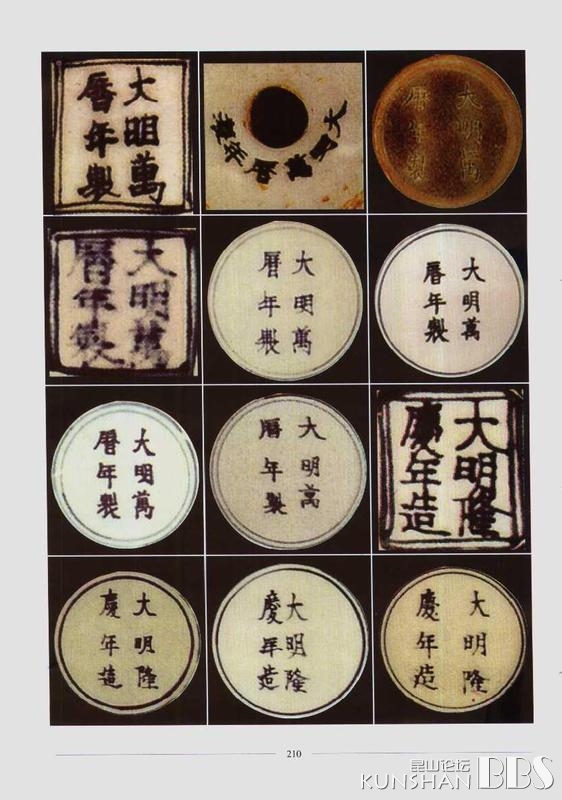 大明萬
曆年製
大明萬曆年製
大明萬
曆年製
大明萬
曆年製
大明萬
曆年製
大明萬
曆年製
大明萬
曆年製
大明萬
曆年製
大明隆
慶年造
大明隆
慶年造
大明隆
慶年造
大明隆
慶年造
210
昆山论坛
KUNSHAN BBS